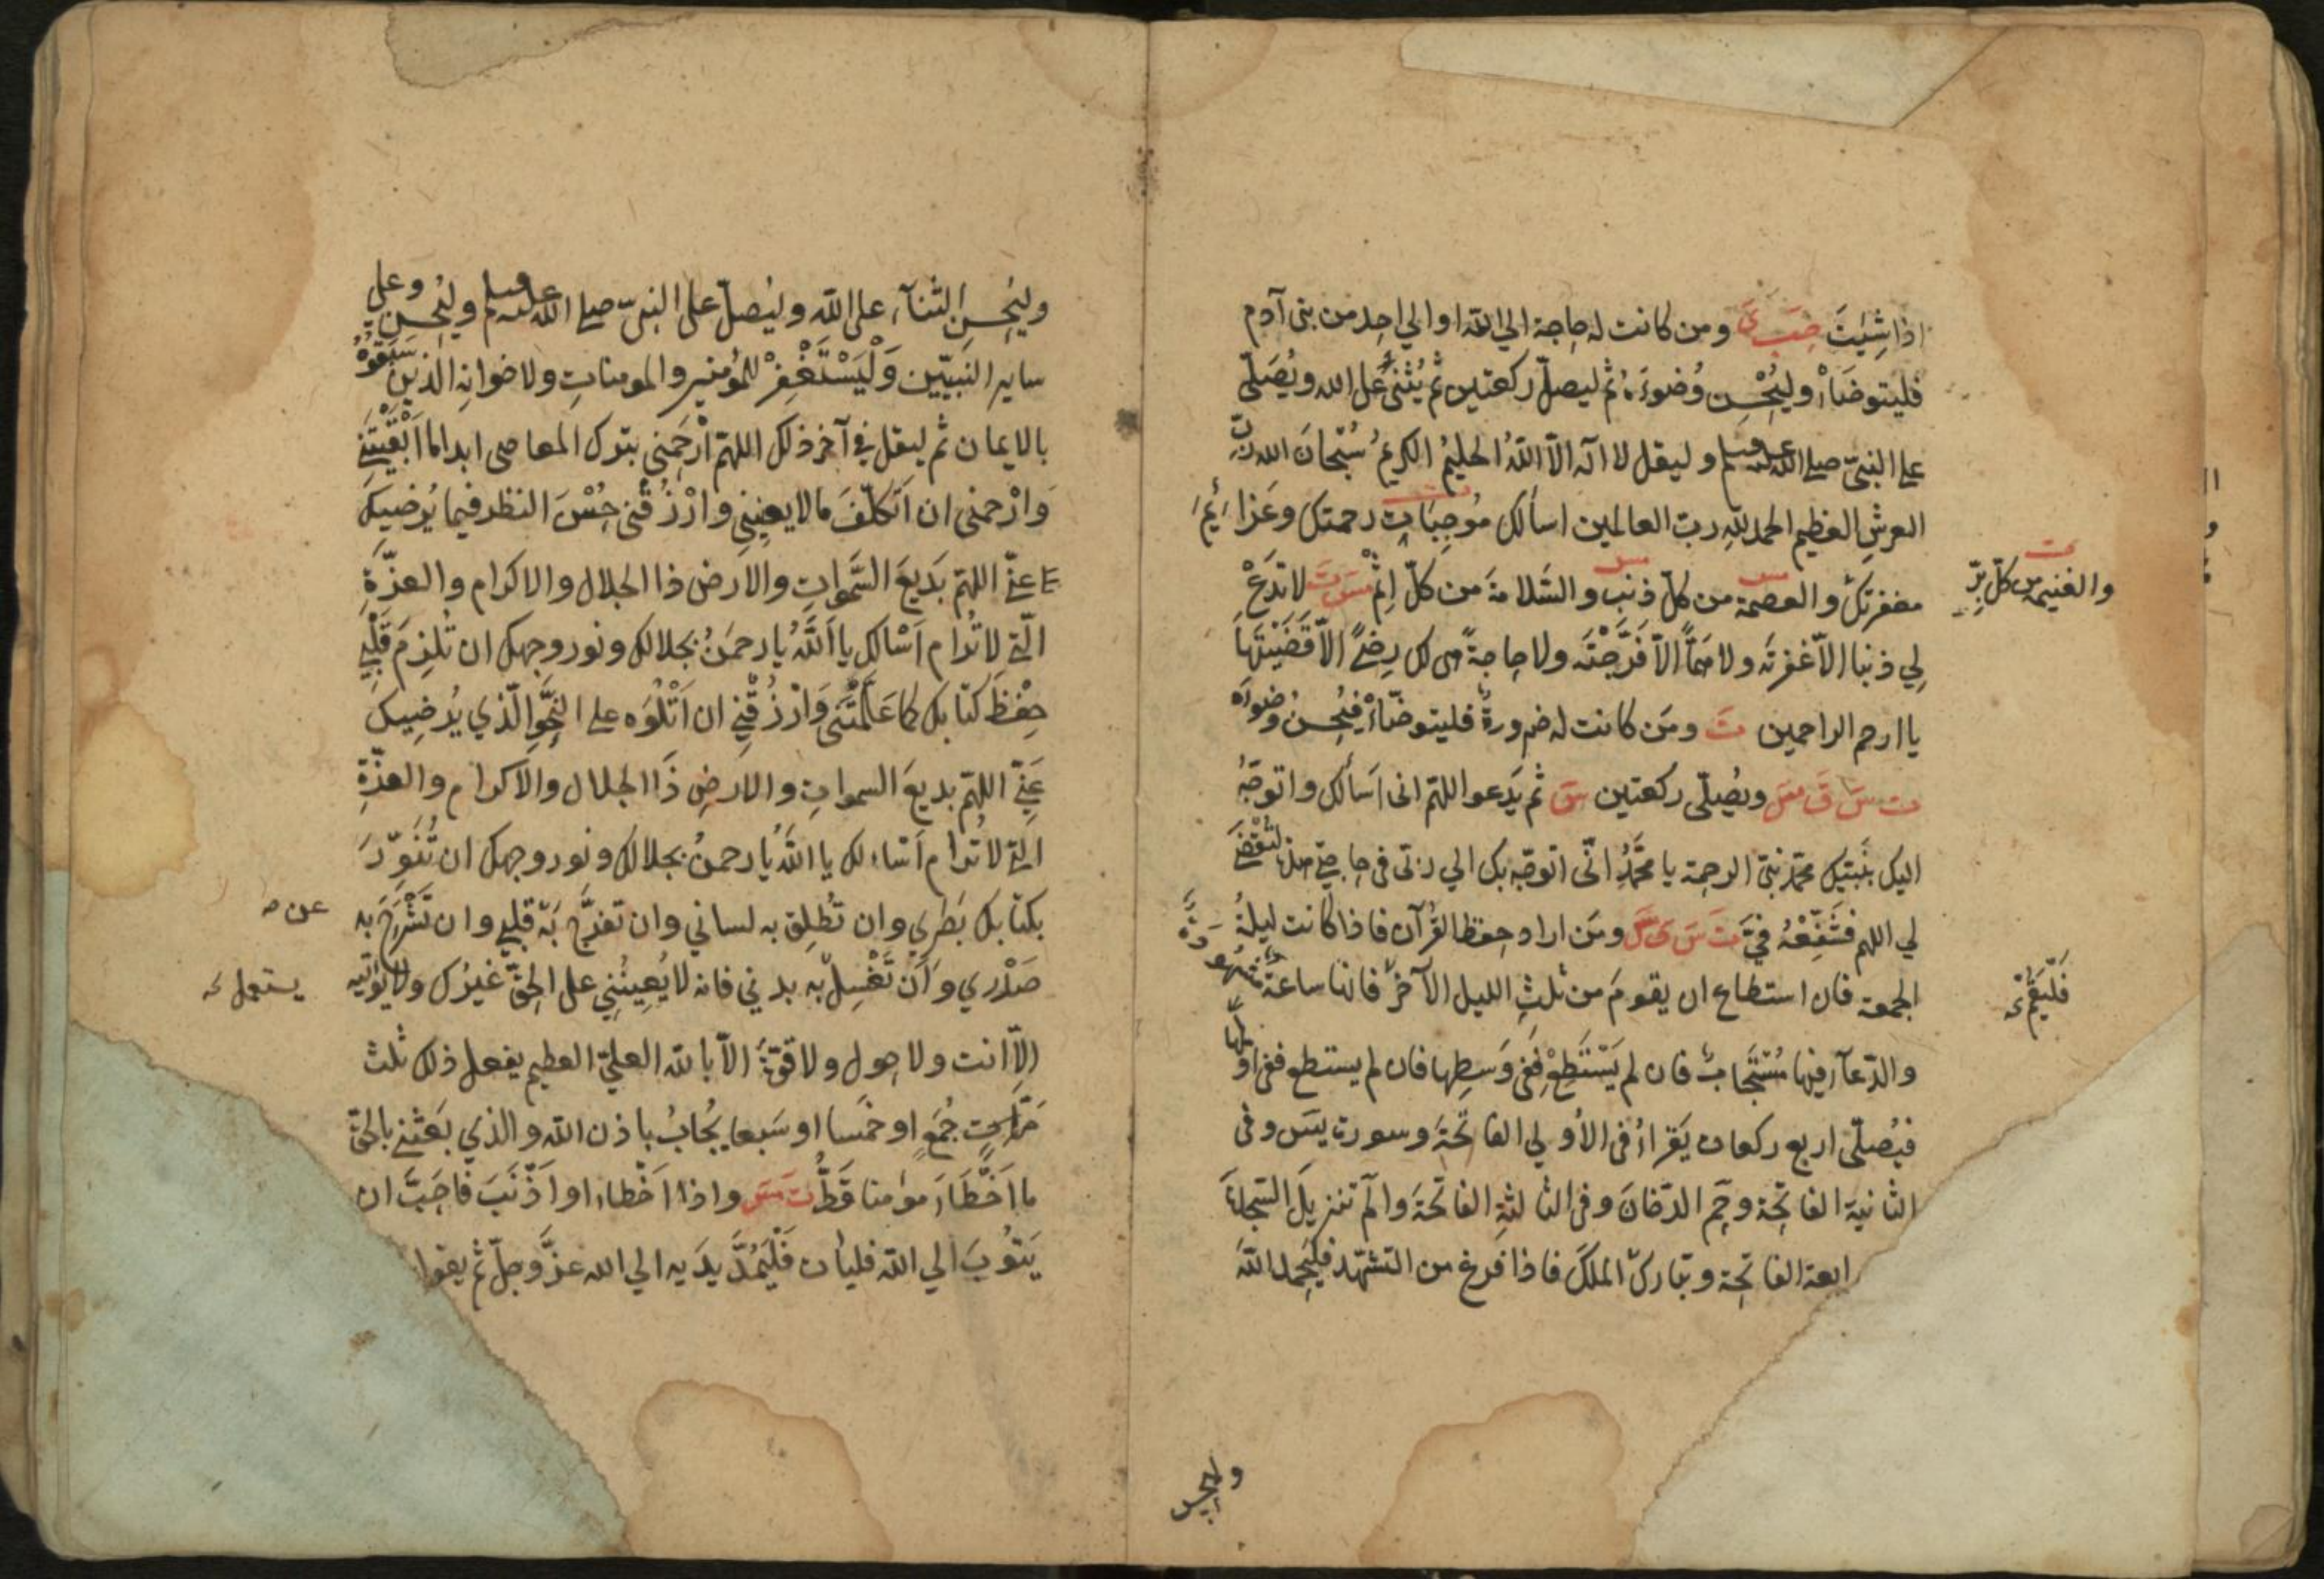 اذا شِيْتَ حَبَ یَ ومن كانت له حاجة الي الله او الي احد من بني آدم
فليتوضَأْ وليُحْسِن وُضوءَهُ ثم ليصلّ ركعتين ثم يُثنى عَلى الله ويُصَلّى
على النبىّ صلى الله عليه وسلم وليقل لا اله الاّ اللّهُ الحليمُ الكريمُ سُبْحانَ الله ربِّ
العرشِ العظيم الحمد للهِ ربّ العالمين اسألك مُوجِبَاتِ رحمتك وعَزائِمَ
مغفرتك والعصمة من كلّ ذنبٍ والسَّلامةَ من كلّ اِثْمٍ مسَ تَ لا تدَعْ
والغنيمة من كلّ بِرّ
ت
مس
مس
لِي ذنبا الاّ غفرتَه ولا هَمًّا الاّ فَرَّجْتَه ولا حاجةً هى لك رِضىً الاّ قَضَيْتَها
يا ارحم الراحمين تَ ومَن كانت له ضرورةٌ فليتوضّأْ فيُحْسِن وضوءَه
ت سَ قَ مسَ ويُصلّى ركعتين سَق ثم يَدعو اللهمّ انى اَسألك واتوجّهُ
اليك بنَبيّك محمّد نبىّ الرحمة يا محمّدُ انّى اتوجّه بك الي ربّى فى حاجتى هذه لتُقْضَى
لي اللهم فشَفِّعْهُ فيَّ تَ سَ ق مسَ ومَن اراد حِفظ القُرآن فاذا كانت ليلةُ
الجمعة فان استطاع ان يقومَ من ثلثِ الليل الآخر فانها ساعةٌ مَشْهُودَةٌ
فَلْيَقُمْ
والدّعآء فيها مُسْتَجابٌ فان لم يَسْتَطِعْ فِفى وَسطِها فان لم يستطع ففى اوّلها
فيُصلّى اربع ركعات يَقرأ فى الأولي الفاتحةَ وسورة يسَ وفى
الثانية الفاتِحة وحم الدّخانَ وفى الثالثةِ الفاتحةَ والم تنزيلَ السّجدةَ
ابعة الفاتِحة وتبارك الملكَ فاذا فرغ من التشهّد فليَحمد اللهَ
وليحسن
وليُحسِنِ الثنآء على الله وليُصلّ على النبىّ صلى الله عليه وسلم وليُحسِن وعلي
ساير النَبيّين وَلْيَسْتَغْفِرْ للمؤمنين والمومنات ولاخوانِه الذين سَبَقُوهُ
بالايمان ثم ليقل في آخر ذلك اللهمّ ارْحَمنى بترك المعاصى ابدا ما اَبْقَيْتَنِي
وَارْحمنى ان اَتكلّفَ ما لا يعنيني وارْزُقْنى حُسْنَ النظر فيما يُرضيك
عنّي اللهمّ بَديعَ السَّمواتِ والارض ذا الجلال والاكرام والعزّةِ
الّتي لا تُرام اَسْالك يا اَللّهُ يا رحمَنُ بجلالك ونور وجهك ان تُلزِمَ قَلْبِي
حِفْظَ كتابك كما عَلّمْتَنى وَارْزُقْنِي ان اَتْلُوَه على النحْوِ الّذي يُرضِيك
عَنّي اللهمّ بديعَ السموات والارضِ ذَا الجلال والاكرام والعزّةِ
الّتي لا تُرام اَسْاءلك يا اللّهُ يا رحمنُ بجلالك ونور وجهك ان تُنَوِّرَ
بكتابك بَصَري وان تُطلِق به لساني وان تفرّج بَه قلبي وان تَشْرَحَ به
عن
صَدْري وَاَنْ تَغْسِلَ به بدني فانه لا يُعِينُنِي على الحقّ غيرُك ولا يؤتيه
يستعمل
اِلاّ انت ولا حول ولا قوّةَ الاّ بالله العليّ العظيم يفعل ذلك ثلث
مَرّاتٍ جُمَعٍ او خمسا او سَبعا يُجابُ باذن الله والذي بَعَثني بالحقّ
ما اَخطَاءَ مؤمنا قَطُّ تَ مسَ واذا اَخْطاء او اَذْنَبَ فاحَبَّ ان
يَتوُبَ الي الله فليأت فَلْيَمُدَّ يدَيه الي الله عزّ وجلّ ثم يقول